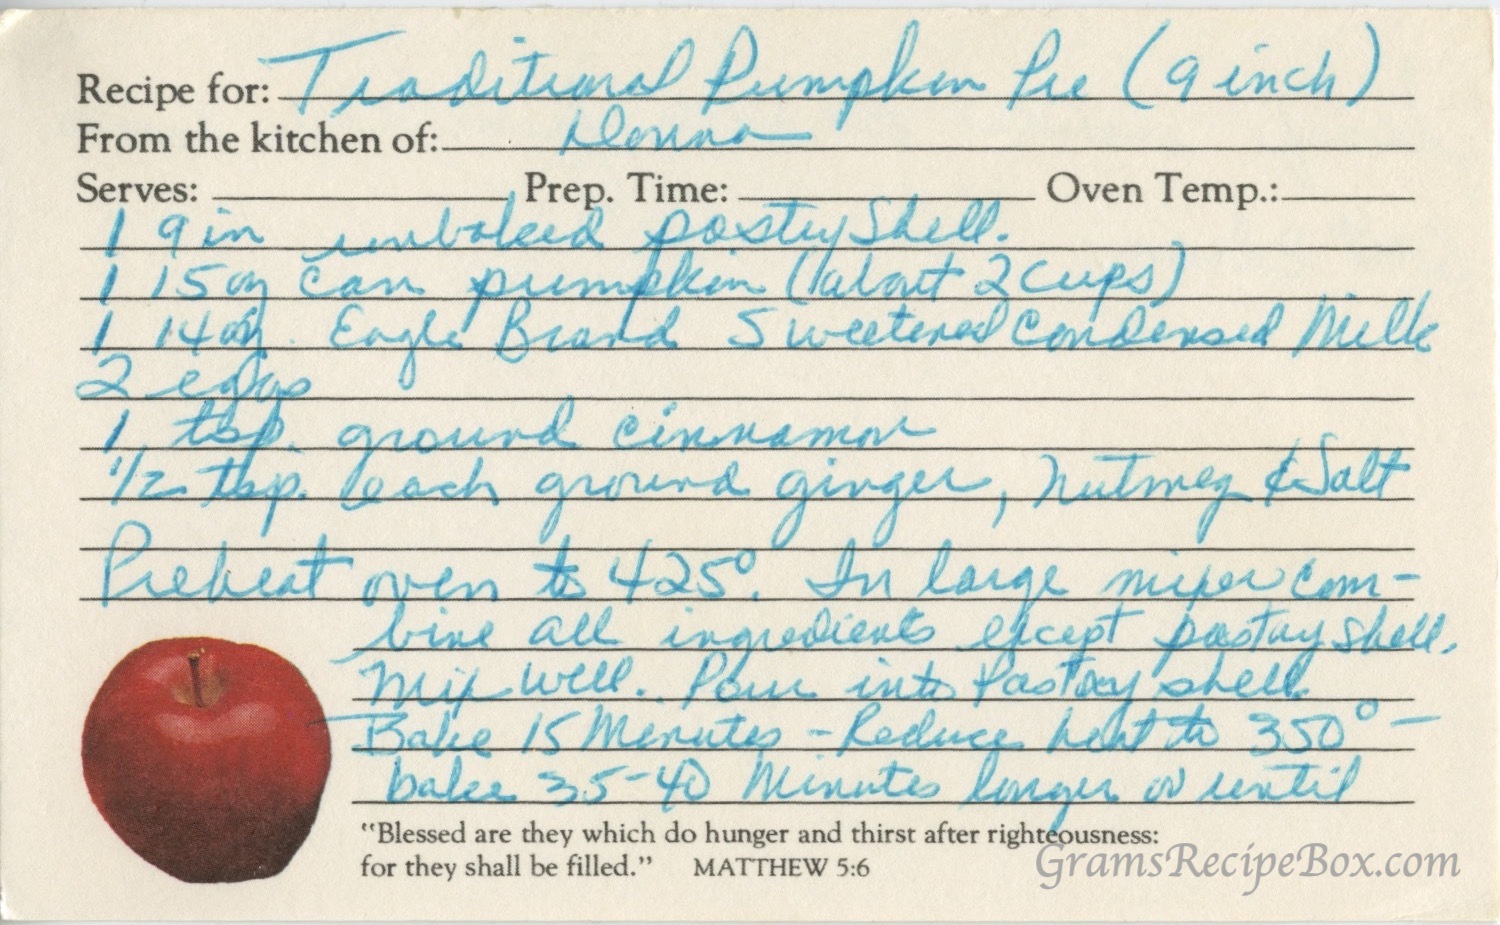 Recipe for: Traditional Pumpkin Pie (9 inch)
From the kitchen of: Donna
Serves: Prep. Time: Oven Temp.:
1 9 in unbaked pastry shell.
1 15 oz can pumpkin (about 2 cups)
1 14 oz. Eagle Brand Sweetened Condensed Milk
2 eggs
1 tsp. ground cinnamon
1/2 tsp. each ground ginger, nutmeg & Salt
Preheat oven to 425°. In large mixer com-
bine all ingredients except pastry shell.
Mix well. Pour into Pastry shell.
Bake 15 Minutes - Reduce heat to 350° -
bake 35-40 Minutes longer or until
"Blessed are they which do hunger and thirst after righteousness:
for they shall be filled." MATTHEW 5:6
GramsRecipeBox.com